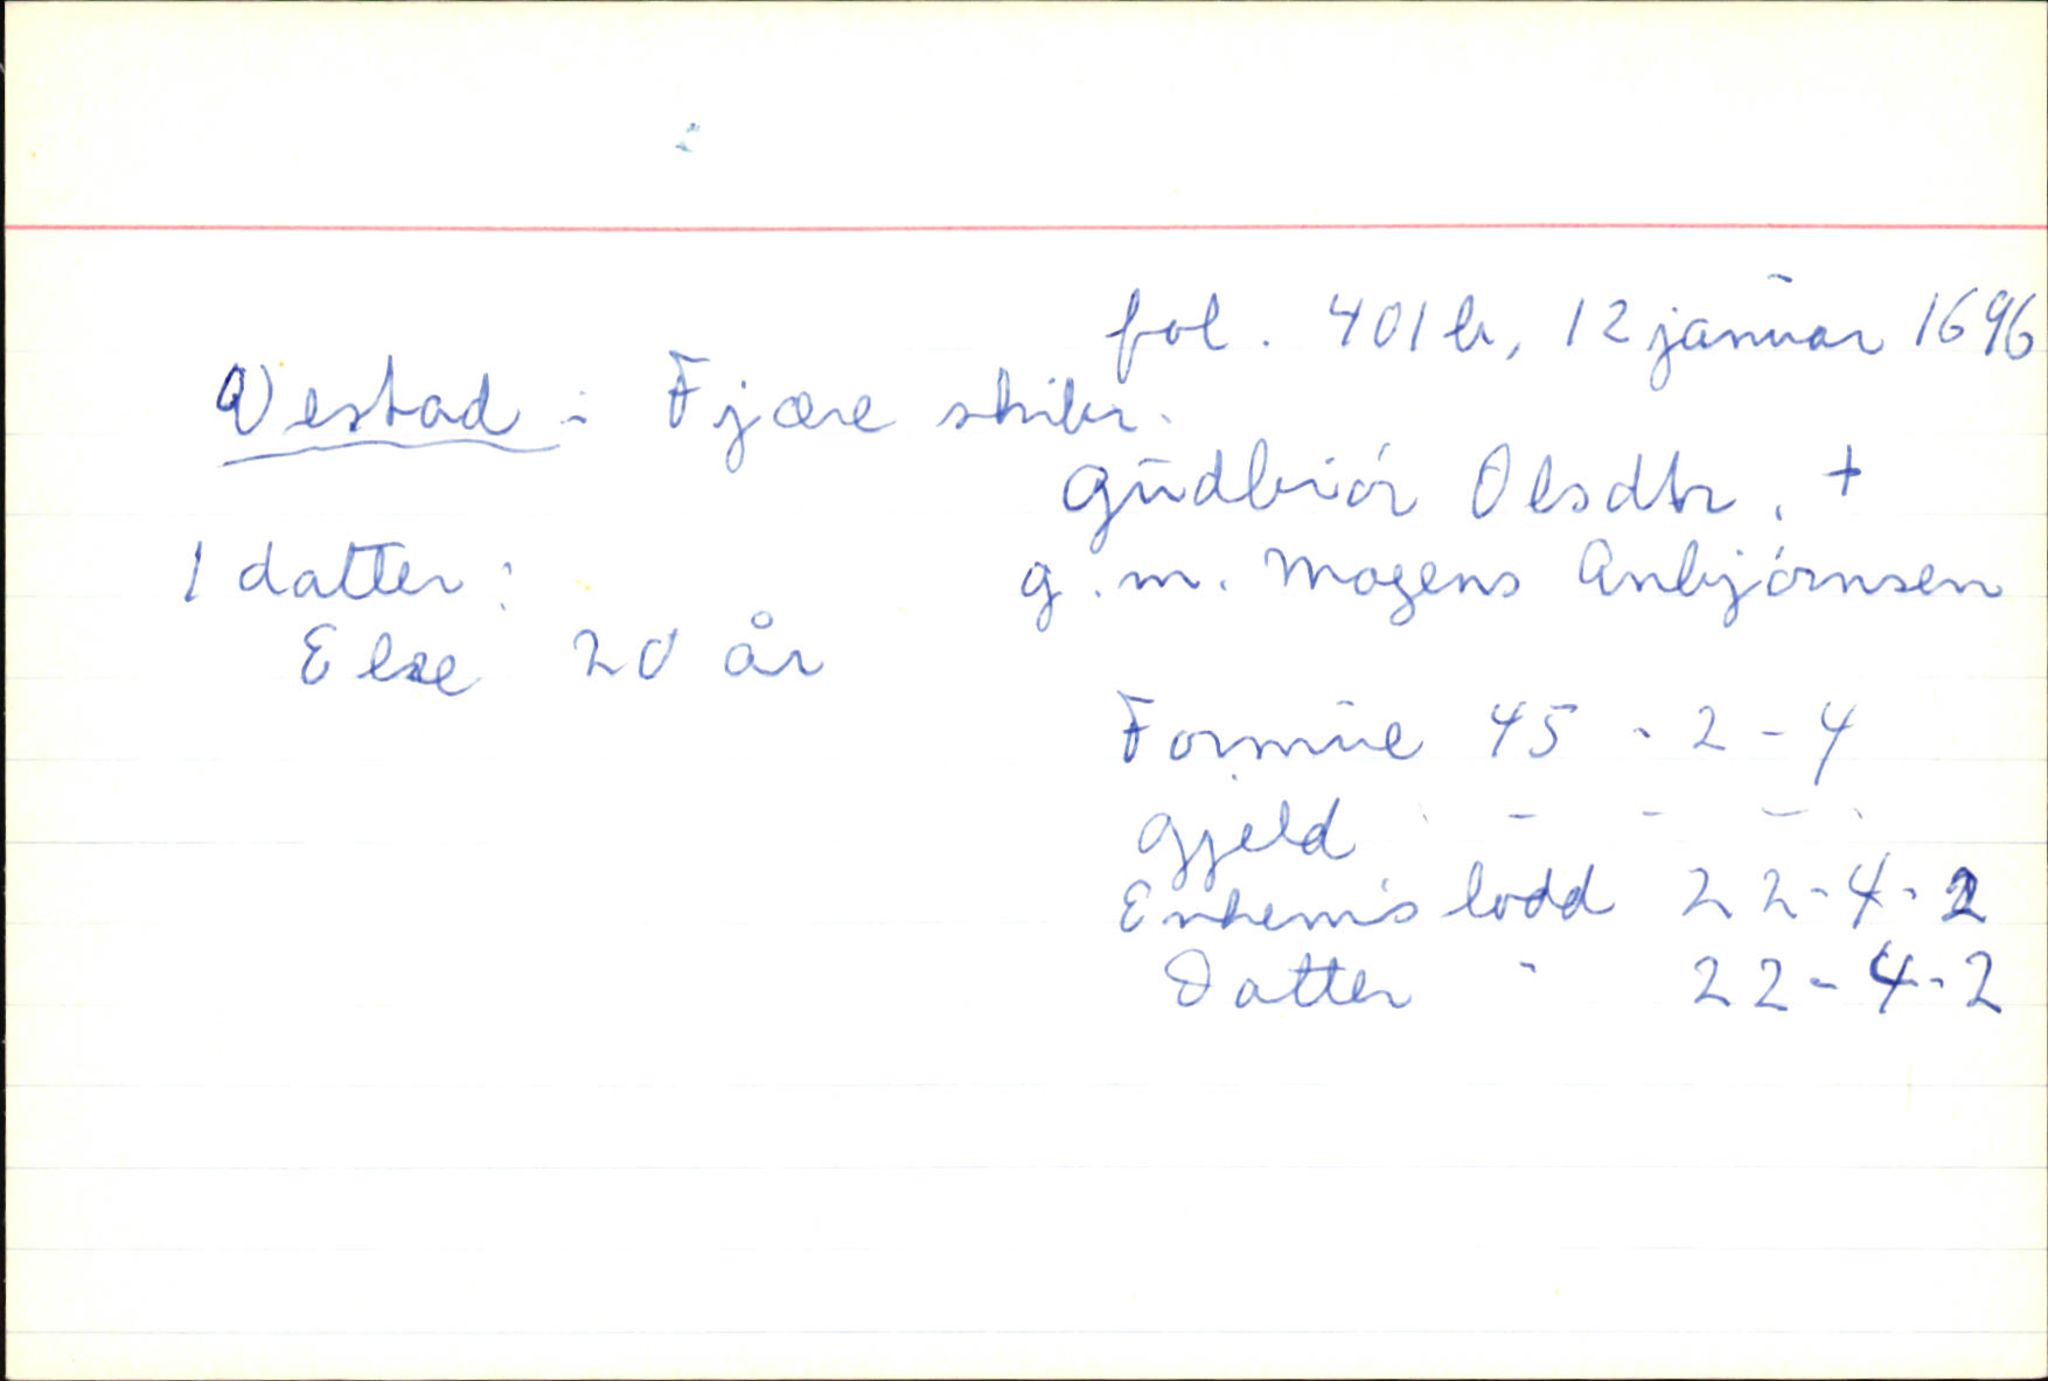 fol. 401b, 12 januar 1696
Vestad i Fjære skibr.
Gudbiør Olsdtr. +
1 datter:
g.m. Mogens Anbjørnsen
Else 20 år
Formue 45 - 2 - 4
Gjeld - - -
Enkem's lodd 22-4-2
Datter " 22-4-2